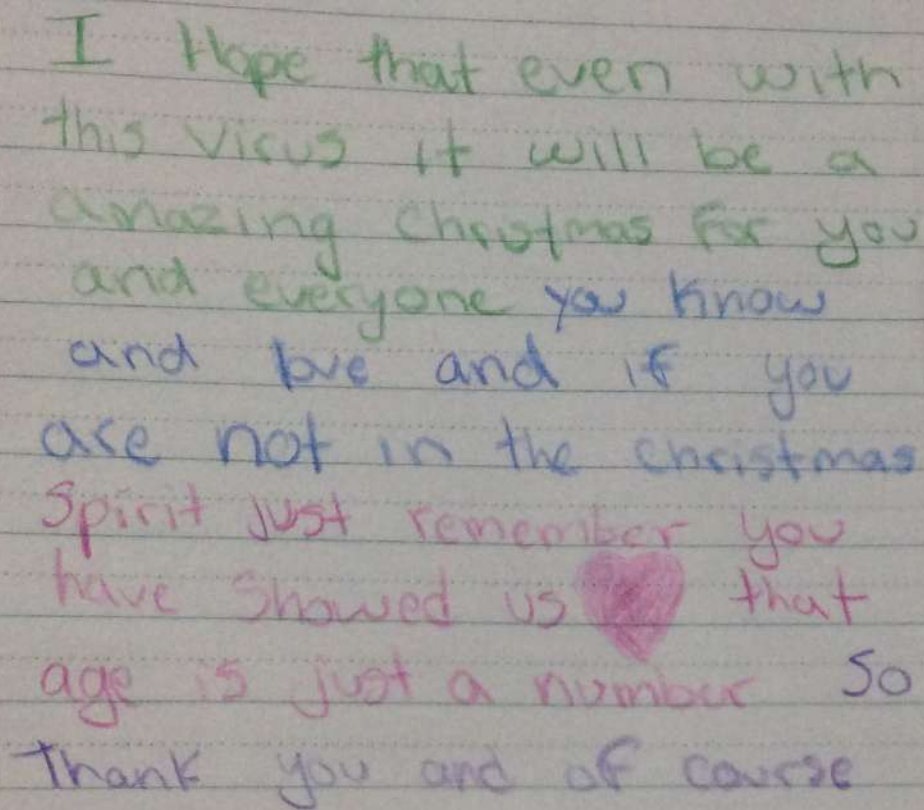 I Hope that even with
this Virus it will be a
amazing Christmas For you
and everyone you know
and love and if you
are not in the christmas
Spirit just remember you
have showed us that
age is just a number So
Thank you and of course